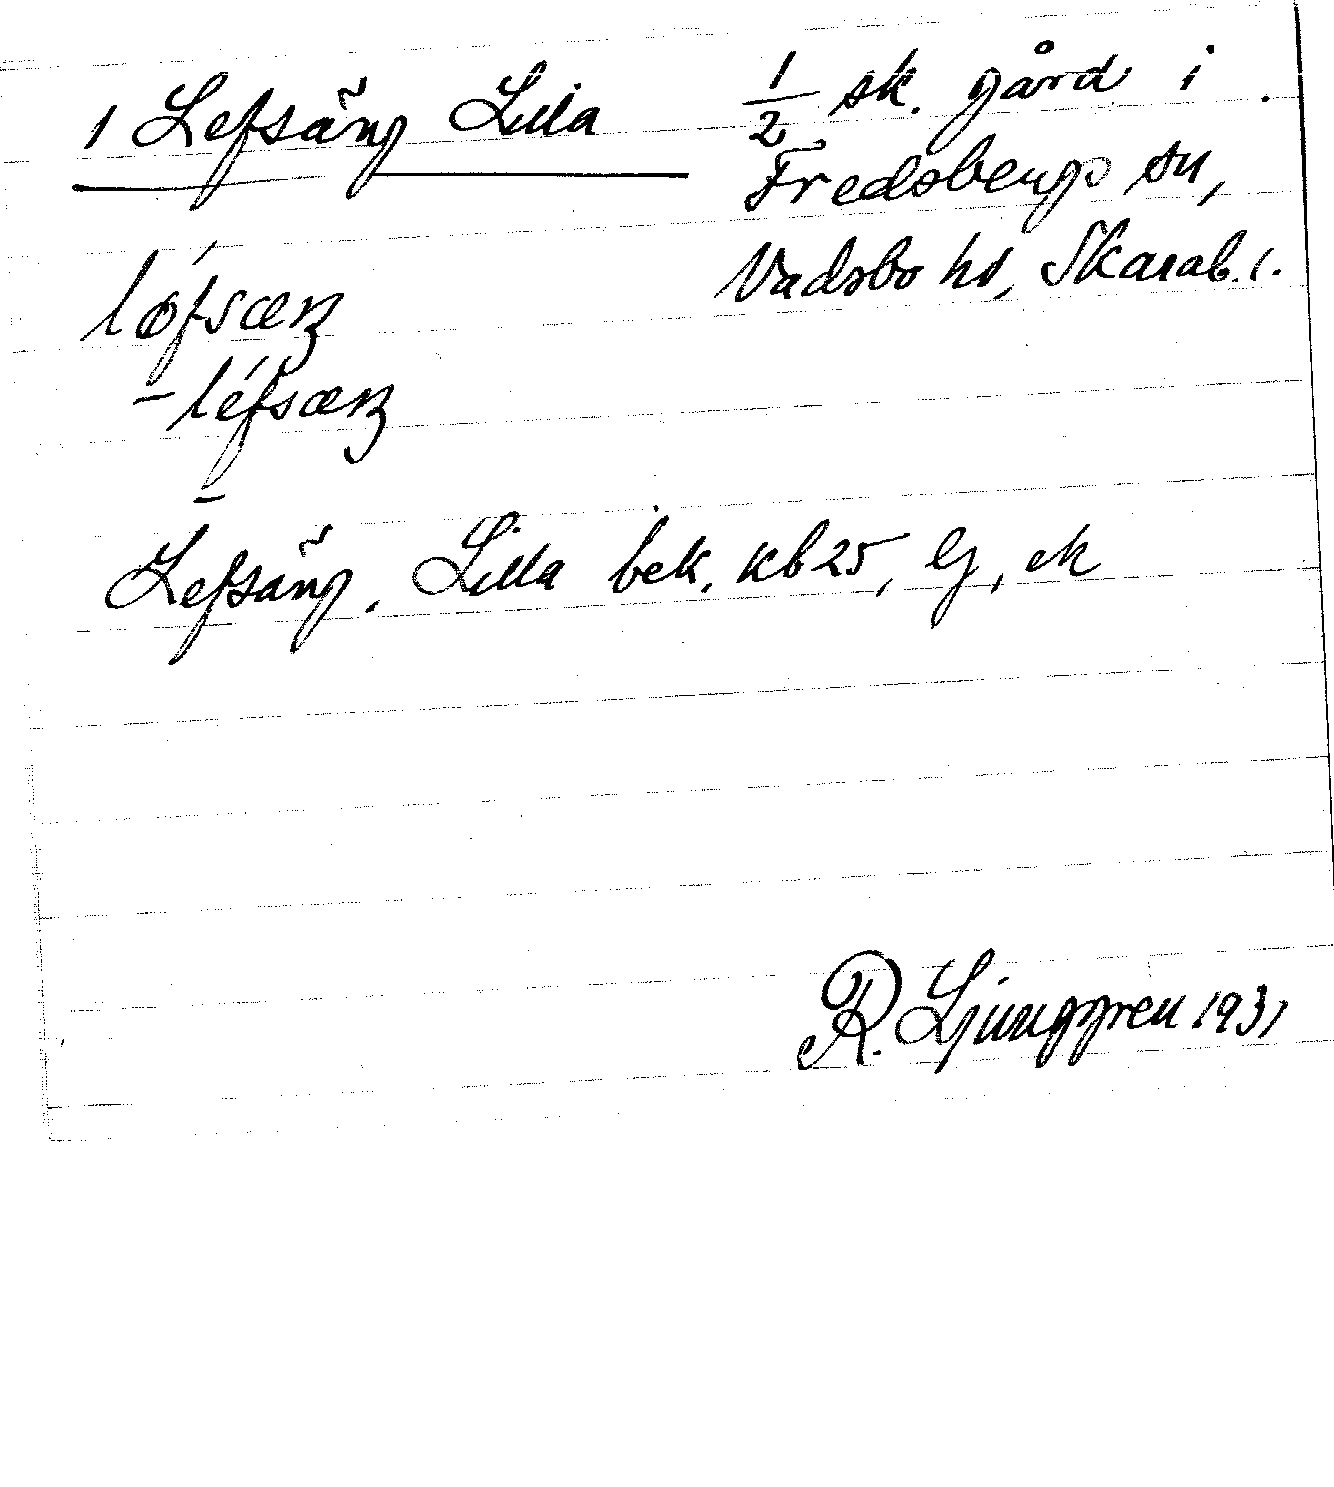 1 Lefsäng Lilla
1/2 sk. gård i
Fredsbergs sn,
Vadsbo hd, Skarab. l.
lǿfsæŋ
- léfsæŋ
Lefsäng, Lilla bek. kb 25, lj, ek
R. Ljunggren 1931